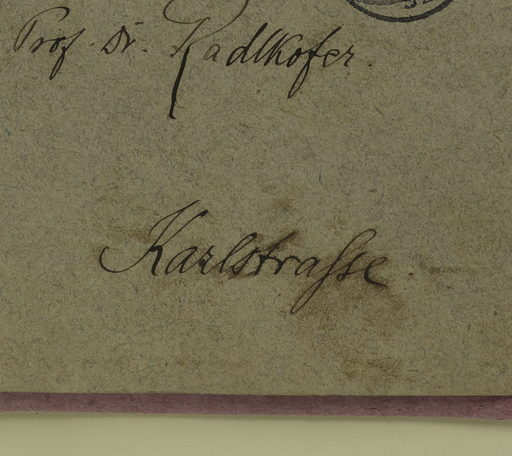 Prof. Dr. Radlkofer.
Karlstrasse.